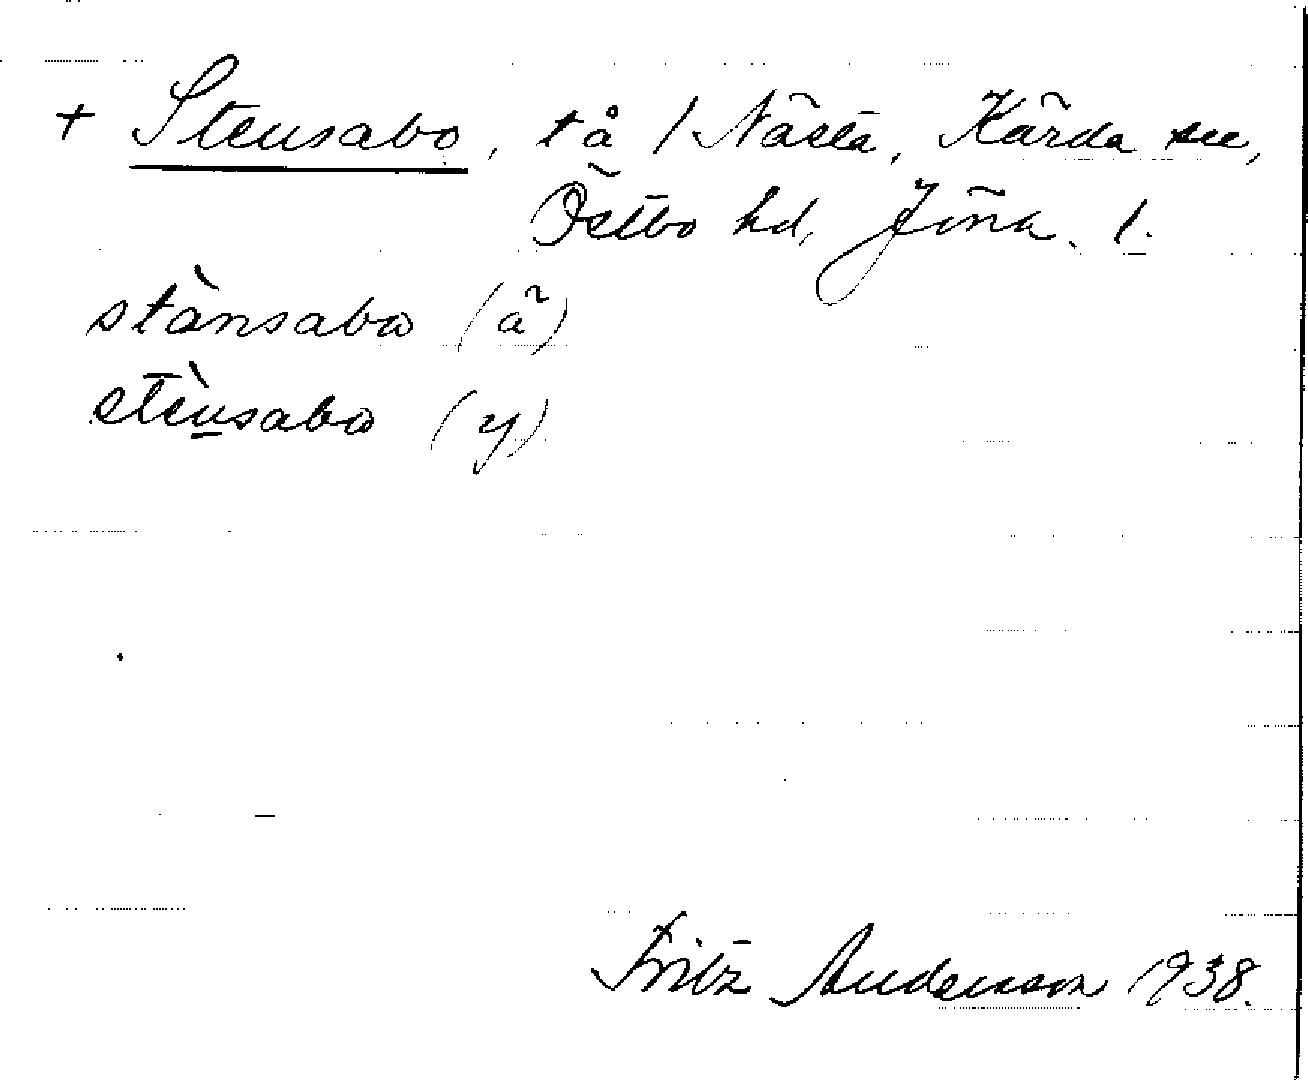 + Stensabo, tå / Nästa, Kärda sn,
Östbo hd, Jönk. l.
stànsabo (ä)
stènsabo (y)
Fritz Anderson 1938.